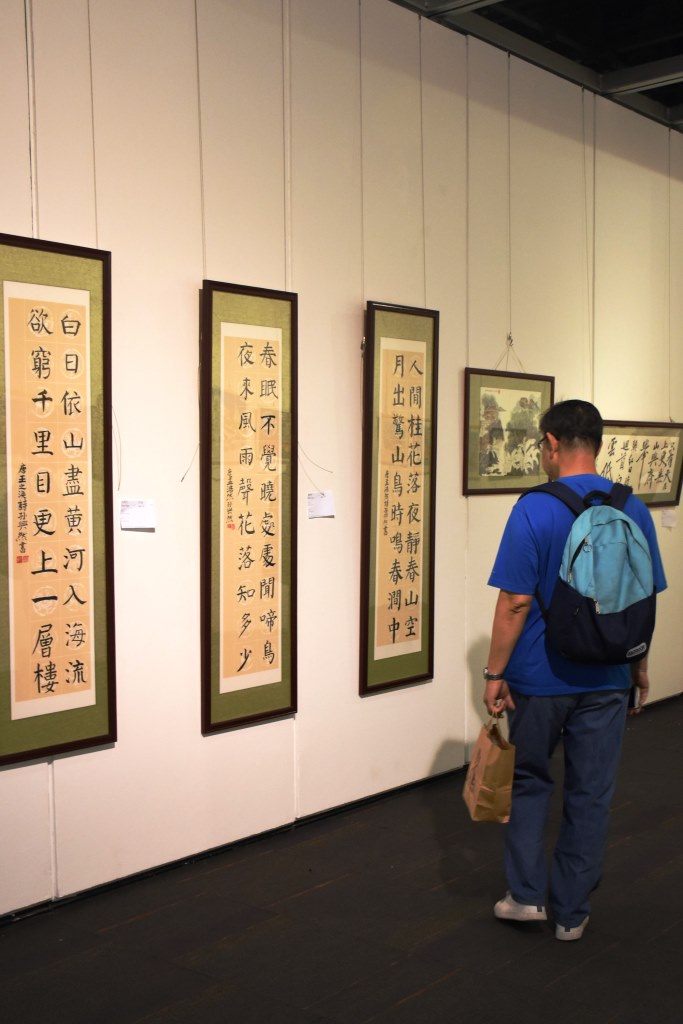 白日依山盡黄河入海流
欲窮千里目更上一層樓
唐王之渙詩
春眠不覺曉處處聞啼鳥
夜來風雨聲花落知多少
人閒桂花落夜靜春山空
月出驚山鳥時鳴春澗中